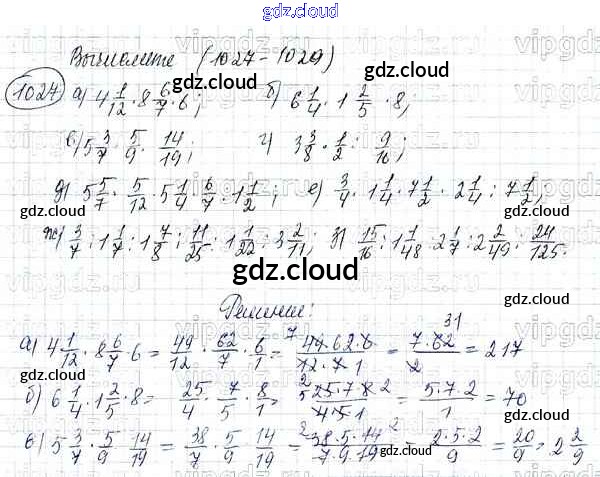 gdz.cloud
Вычислите (1027-1029)
gdz.cloud
1027 а) 4 1/12 · 8 6/7 · 6; б) 6 1/4 · 1 2/5 · 8;
в) 5 3/7 · 5/9 · 14/19; г) 3 3/8 · 1/2 : 9/16;
д) 5 5/7 · 5/12 · 5 1/4 · 6/7 · 1 1/2; е) 3/4 · 1 1/4 · 7 1/2 · 2 1/4 : 7 1/2;
gdz.cloud
ж) 3/7 : 1 1/7 : 1 7/8 : 11/25 : 1 1/22 : 3 2/11; з) 15/16 : 1 1/48 · 2 1/7 : 2 2/49 : 24/125.
gdz.cloud
Решение:
а) 4 1/12 · 8 6/7 · 6 = 49/12 · 62/7 · 6/1 = 49·62·6/12·7·1 = 7·62/2 = 217
б) 6 1/4 · 1 2/5 · 8 = 25/4 · 7/5 · 8/1 = 25·7·8/4·5·1 = 5·7·2/1 = 70
в) 5 3/7 · 5/9 · 14/19 = 38/7 · 5/9 · 14/19 = 38·5·14/7·9·19 = 2·5·2/9 = 20/9 = 2 2/9
gdz.cloud